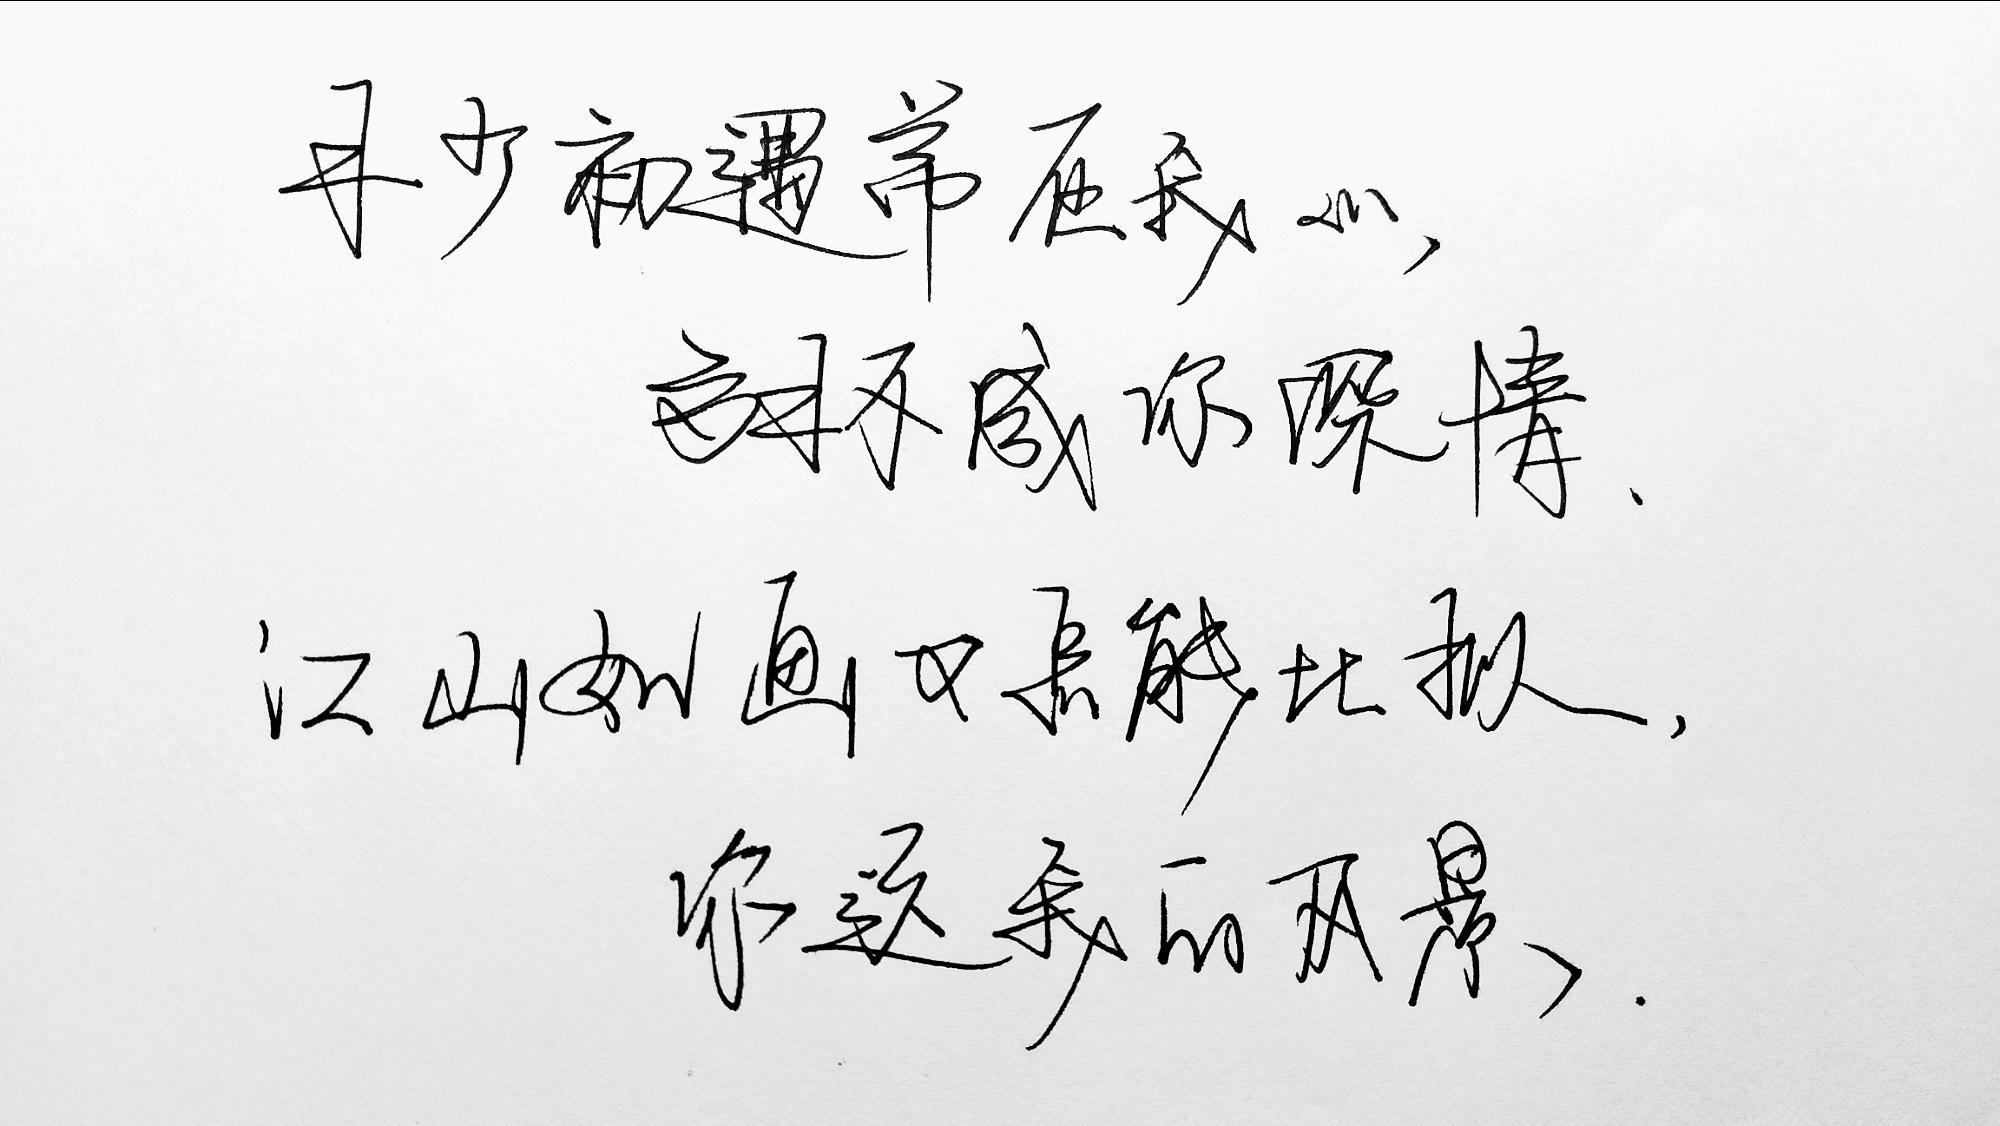 年少初遇常在我心,
多年不减你深情、
江山如画又怎能比拟,
你送我的风景.